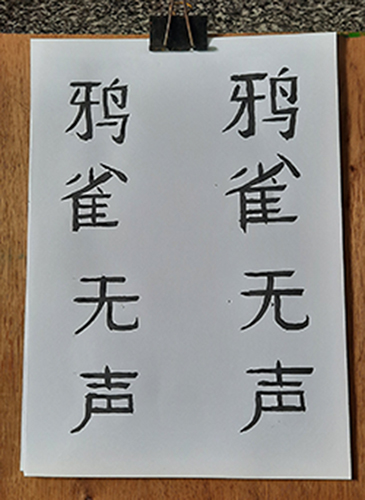 鸦雀无声
鸦雀无声